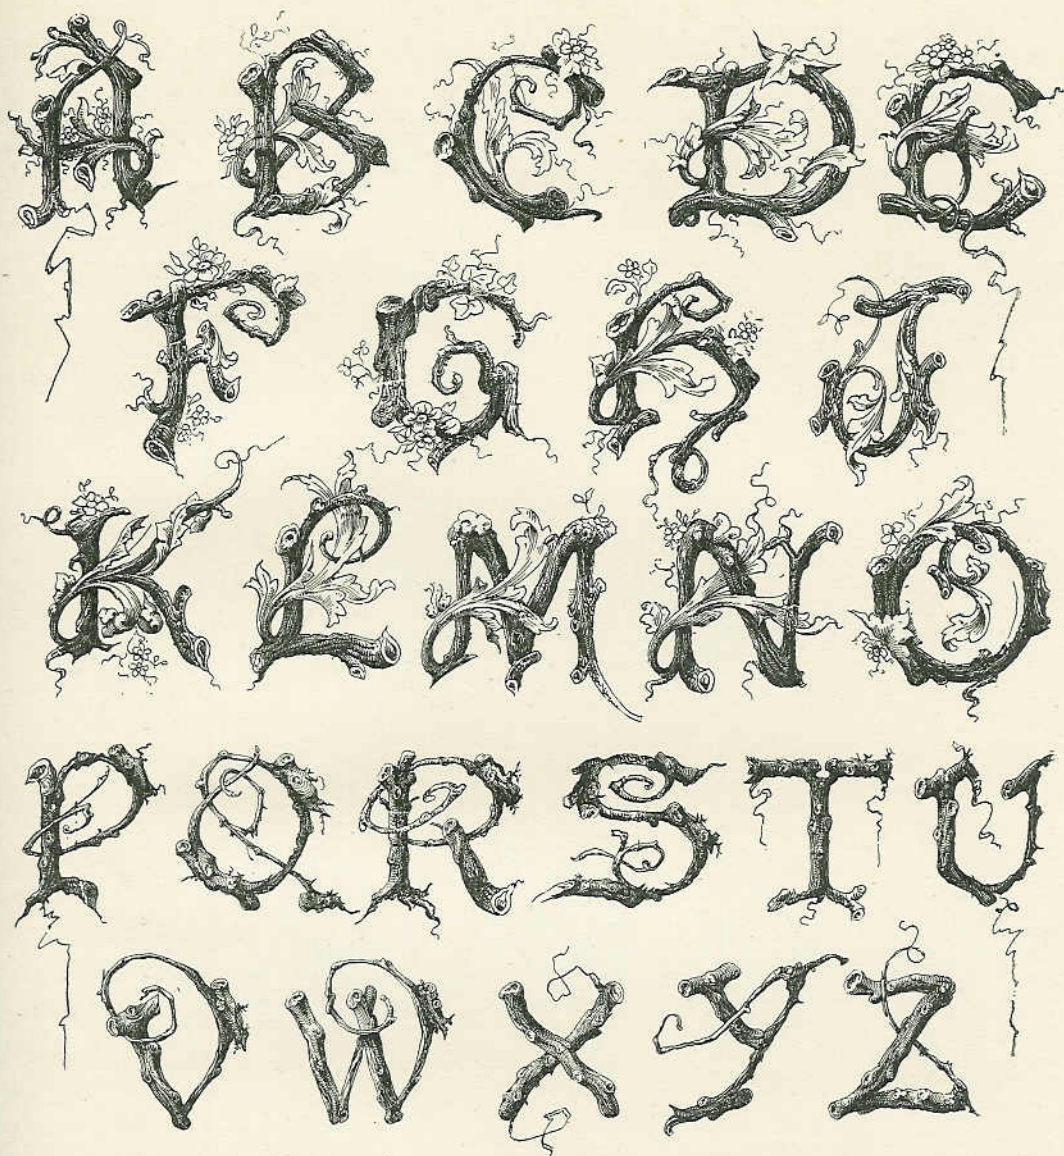 A B C D E
F G H J
K L M N O
P Q R S T U
V W X Y Z